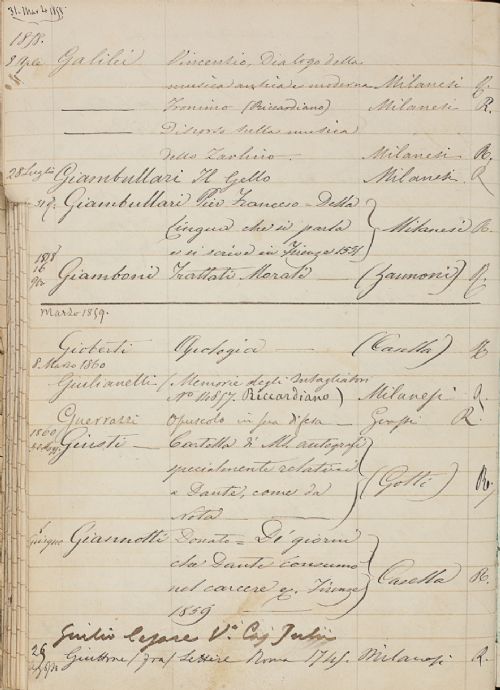 31. Marzo 1858.
1858.
8 Aple Galilei Vincentio, Dialogo della
musica antica e moderna Milanesi R.
Fronimo (Riccardiano) Milanesi R.
Discorso sulla musica
dello Zarlino - Milanesi R.
28 Luglio Giambullari Il Gello Milanesi R
31 d. Giambullari Pier Francesco - Della
Lingua che si parla
e si scrive in Firenze 1551 Milanesi R.
1858
16
9bre Giamboni Trattati Morali (Zannoni) R.
Marzo 1859.
Gioberti Apologia - (Casella) R
8 Marzo 1860
Giulianelli (Memorie degli Intagliatori
No 14857. Riccardiano) Milanesi R.
Guerrazzi Opuscolo in sua difesa - R.
1860
Giusti - Cartella di MS. autografi
specialmente relativi
a Dante, come da
Nota - (Gotti) R.
Giugno Giannotti Donato = De' giorni
che Dante consumò
nel carcere &. Firenze
1859 Casella R.
Giulio Cesare V. Caj Julii
26
Guittone (fra) Lettere Roma 1745. Milanesi R.